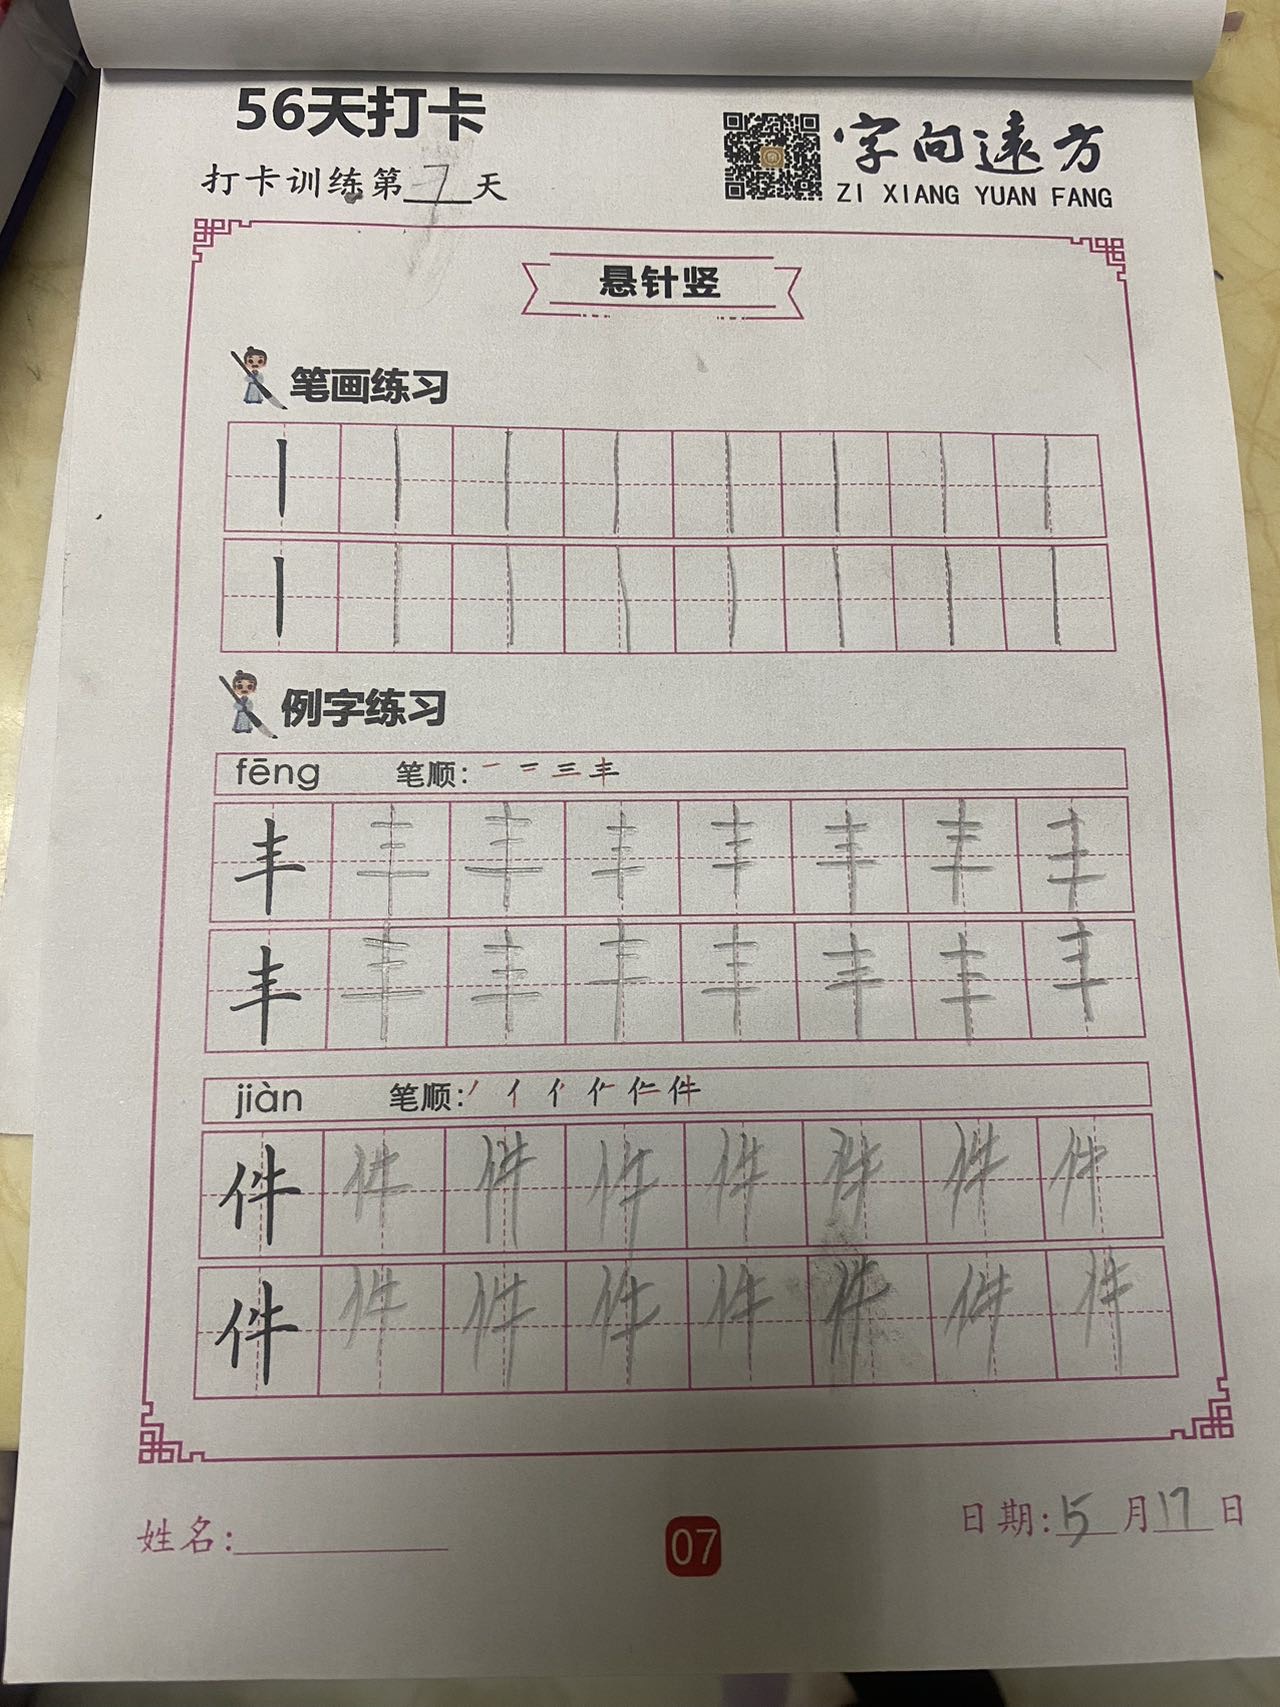 56天打卡
打卡训练第7天
字向遠方
ZI XIANG YUAN FANG
悬针竖
笔画练习
丨丨丨丨丨丨丨丨
丨丨丨丨丨丨丨丨
例字练习
fēng 笔顺: 一 二 三 丰
丰丰丰丰丰丰丰丰
丰丰丰丰丰丰丰丰
jiàn 笔顺: 丿 亻 件
件件件件件件件件
件件件件件件件件
姓名:
07
日期:5月17日